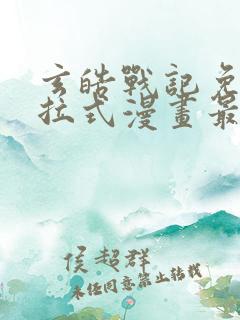 玄皓戰記免
拉式漫畫最
侯超群
未經同意禁止轉載